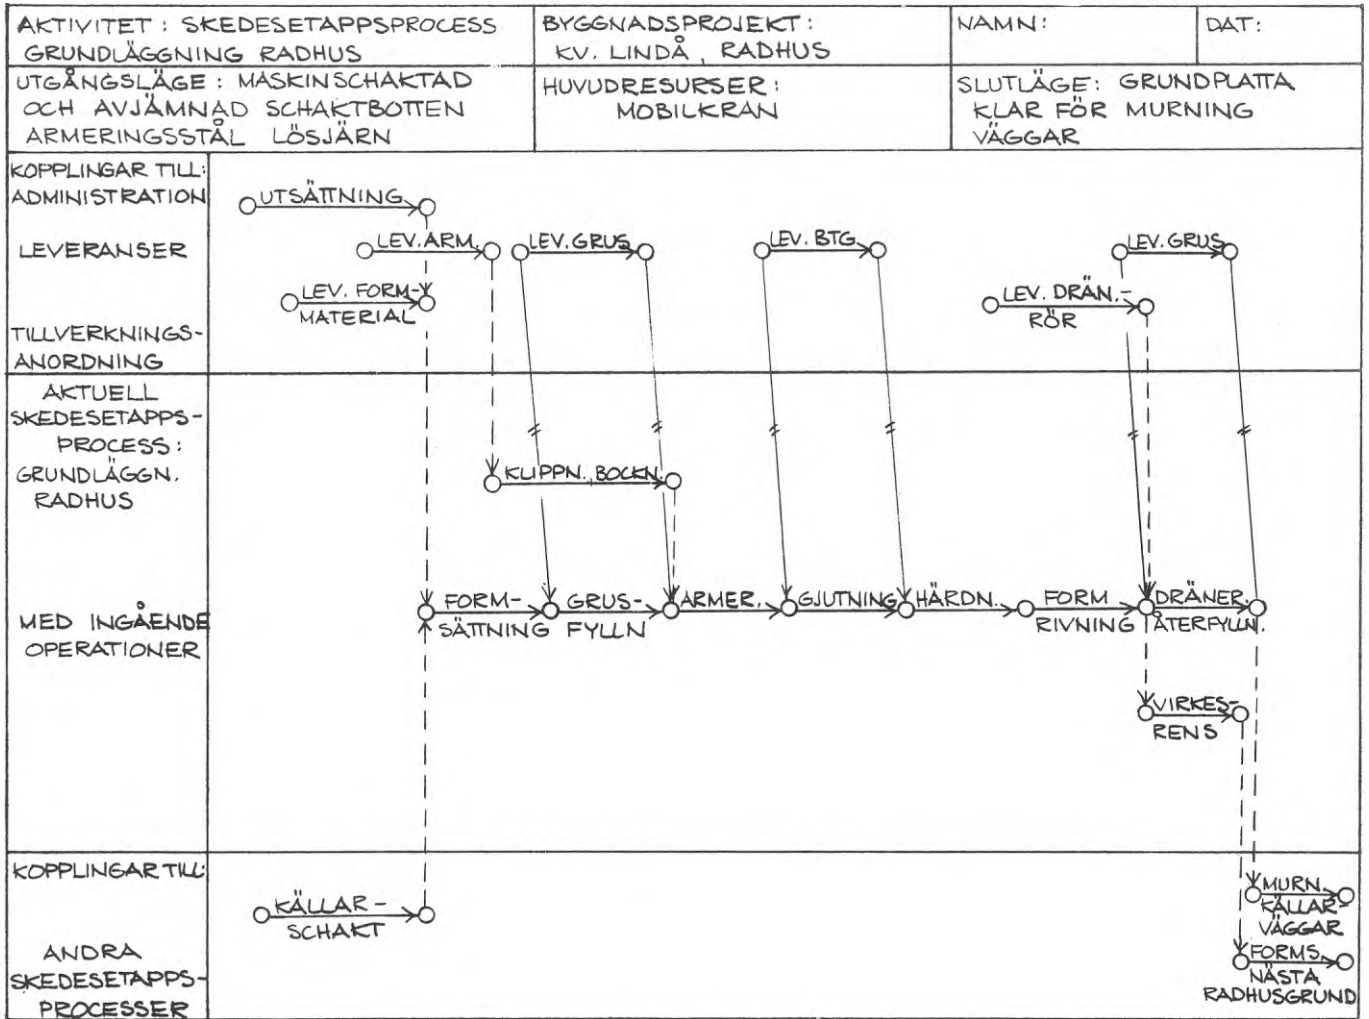 AKTIVITET : SKEDESETAPPSPROCESS
GRUNDLÄGGNING RADHUS
BYGGNADSPROJEKT :
KV. LINDÅ , RADHUS
NAMN:
DAT:
UTGÅNGSLÄGE : MASKINSCHAKTAD
OCH AVJÄMNAD SCHAKTBOTTEN
ARMERINGSSTÅL LÖSJÄRN
HUVUDRESURSER :
MOBILKRAN
SLUTLÄGE: GRUNDPLATTA
KLAR FÖR MURNING
VÄGGAR
KOPPLINGAR TILL:
ADMINISTRATION
UTSÄTTNING
LEVERANSER
LEV. ARM.
LEV. GRUS
LEV. BTG
LEV. GRUS
LEV. FORM-
MATERIAL
LEV. DRÄN.-
RÖR
TILLVERKNINGS-
ANORDNING
AKTUELL
SKEDESETAPPS-
PROCESS :
GRUNDLÄGGN.
RADHUS
KLIPPN., BOCKN.
MED INGÅENDE
OPERATIONER
FORM-
SÄTTNING
GRUS-
FYLLN
ARMER.
GJUTNING
HÄRDN.
FORM
RIVNING
DRÄNER.
ÅTERFYLLN.
VIRKES-
RENS
KOPPLINGAR TILL:
ANDRA
SKEDESETAPPS-
PROCESSER
KÄLLAR-
SCHAKT
MURN.
KÄLLAR-
VÄGGAR
FORMS.
NÄSTA
RADHUSGRUND